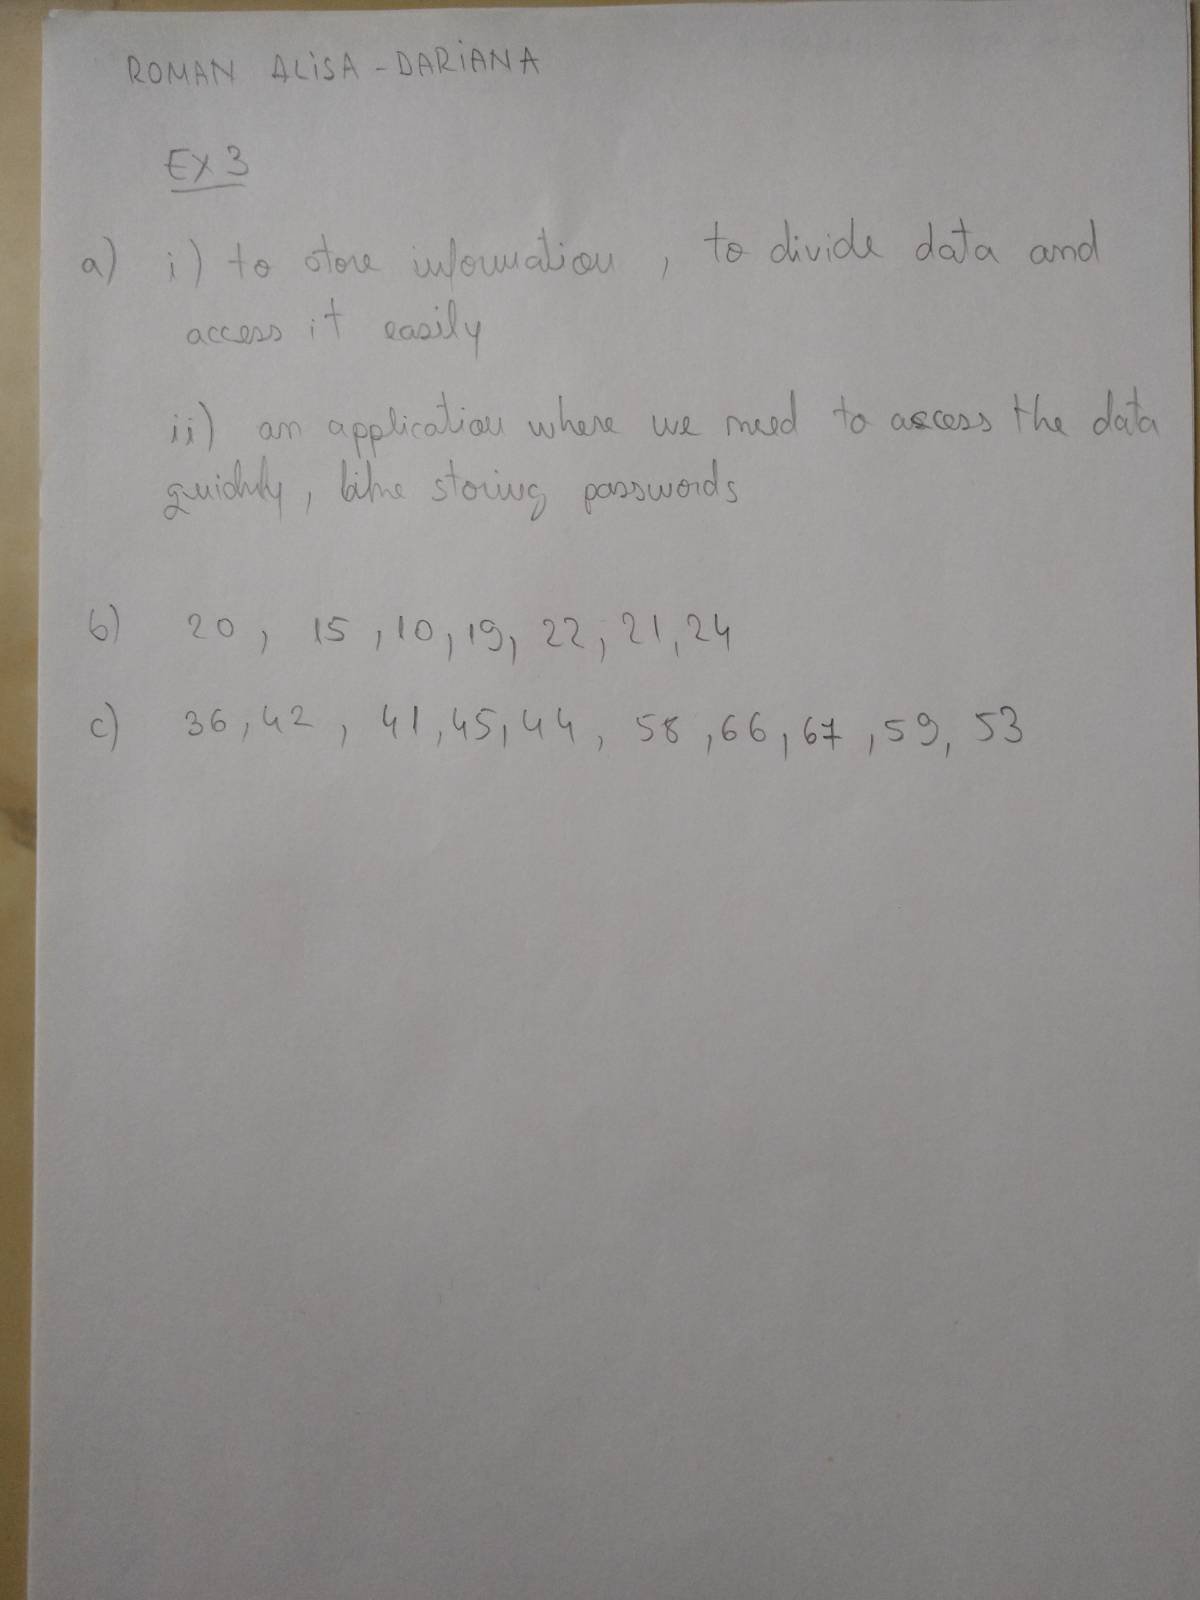 ROMAN ALISA-DARIANA
EX 3
a) i) to store information, to divide data and
access it easily
ii) an application where we need to access the data
quickly, like storing passwords
b) 20, 15, 10, 19, 22, 21, 24
c) 36, 42, 41, 45, 44, 58, 66, 67, 59, 53